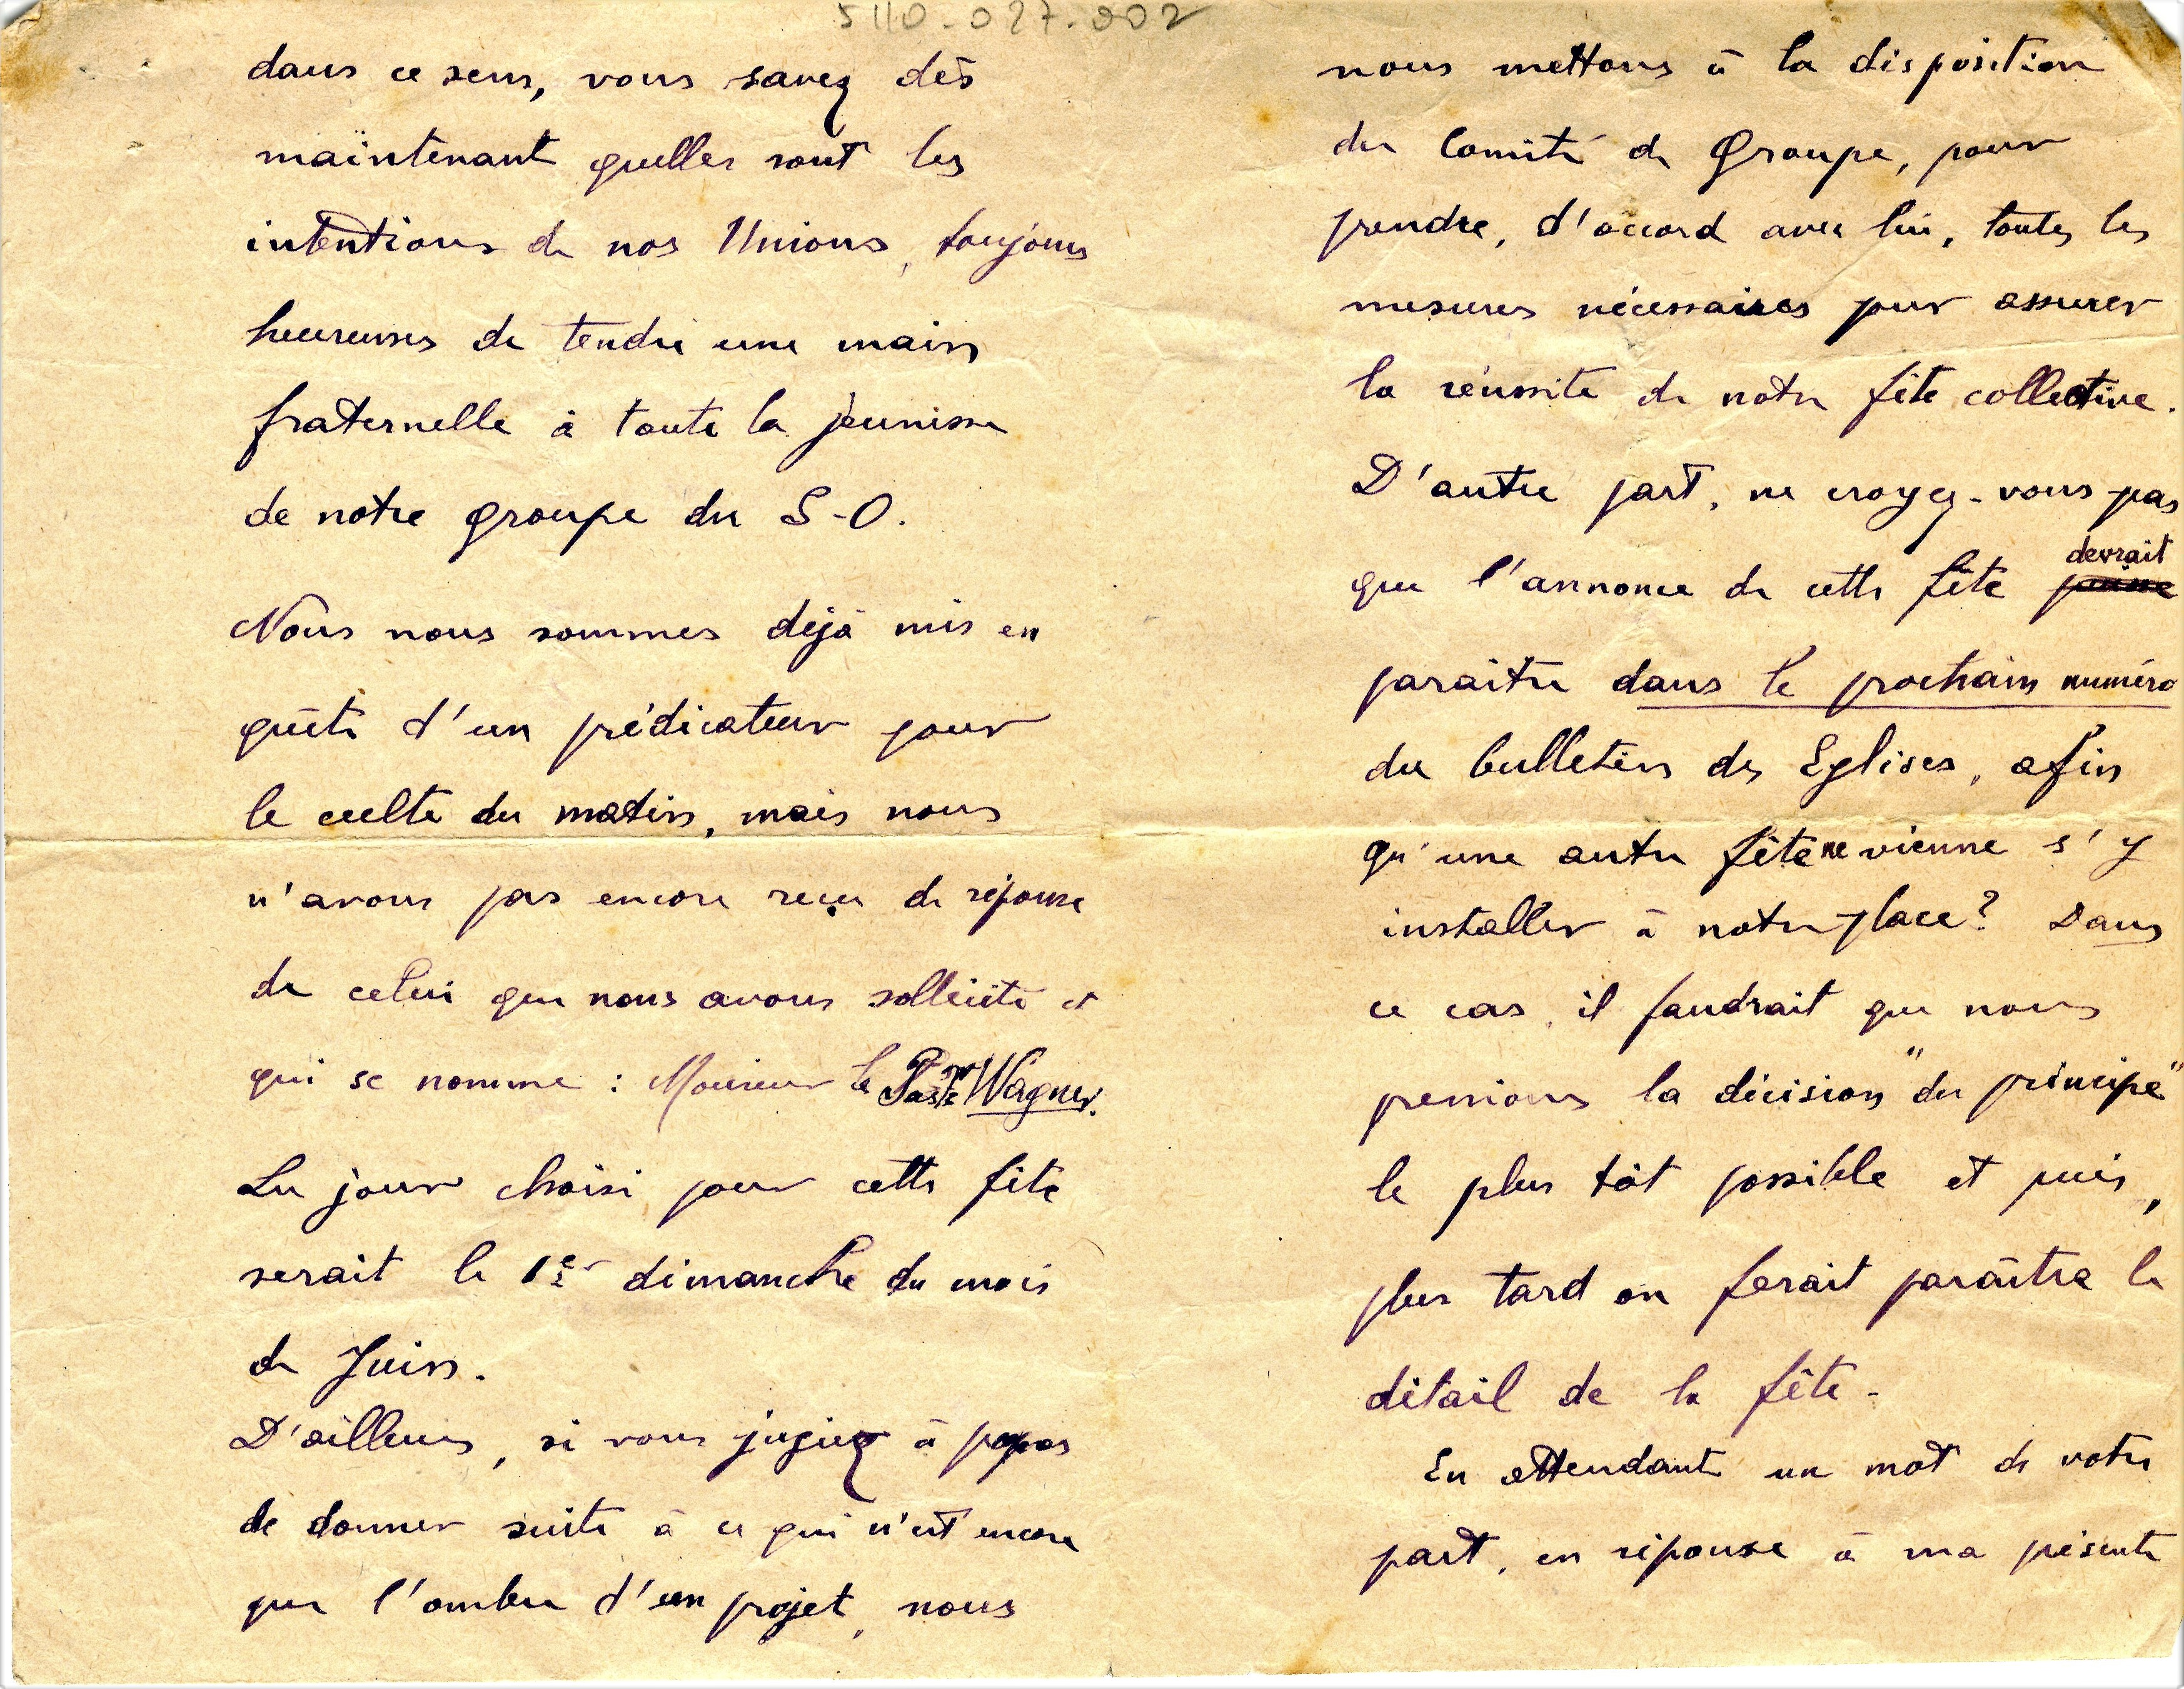 5110-027-002
dans ce sens, vous savez dès
maintenant quelles sont les
intentions de nos Unions, toujours
heureuses de tendre une main
fraternelle à toute la jeunesse
de notre groupe du S-O.
Nous nous sommes déjà mis en
quête d'un prédicateur pour
le culte du matin, mais nous
n'avons pas encore reçu de réponse
de celui que nous avons sollicité et
qui se nomme : Monsieur le Past^r Wagner.
Le jour choisi pour cette fête
serait le 1er dimanche du mois
de Juin.
D'ailleurs, si vous jugiez à propos
de donner suite à ce qui n'est encore
que l'ombre d'un projet, nous
nous mettons à la disposition
du Comité de Groupe, pour
prendre, d'accord avec lui, toutes les
mesures nécessaires pour assurer
la réussite de notre fête collective.
D'autre part, ne croyez-vous pas
que l'annonce de cette fête devrait
paraitre dans le prochain numéro
du bulletin des Eglises, afin
qu'une autre fête ne vienne s'y
installer à notre place? Dans
ce cas, il faudrait que nous
prenions la décision "du principe"
le plus tôt possible et puis,
plus tard on ferait paraître le
détail de la fête-
En attendant un mot de votre
part, en réponse à ma présente